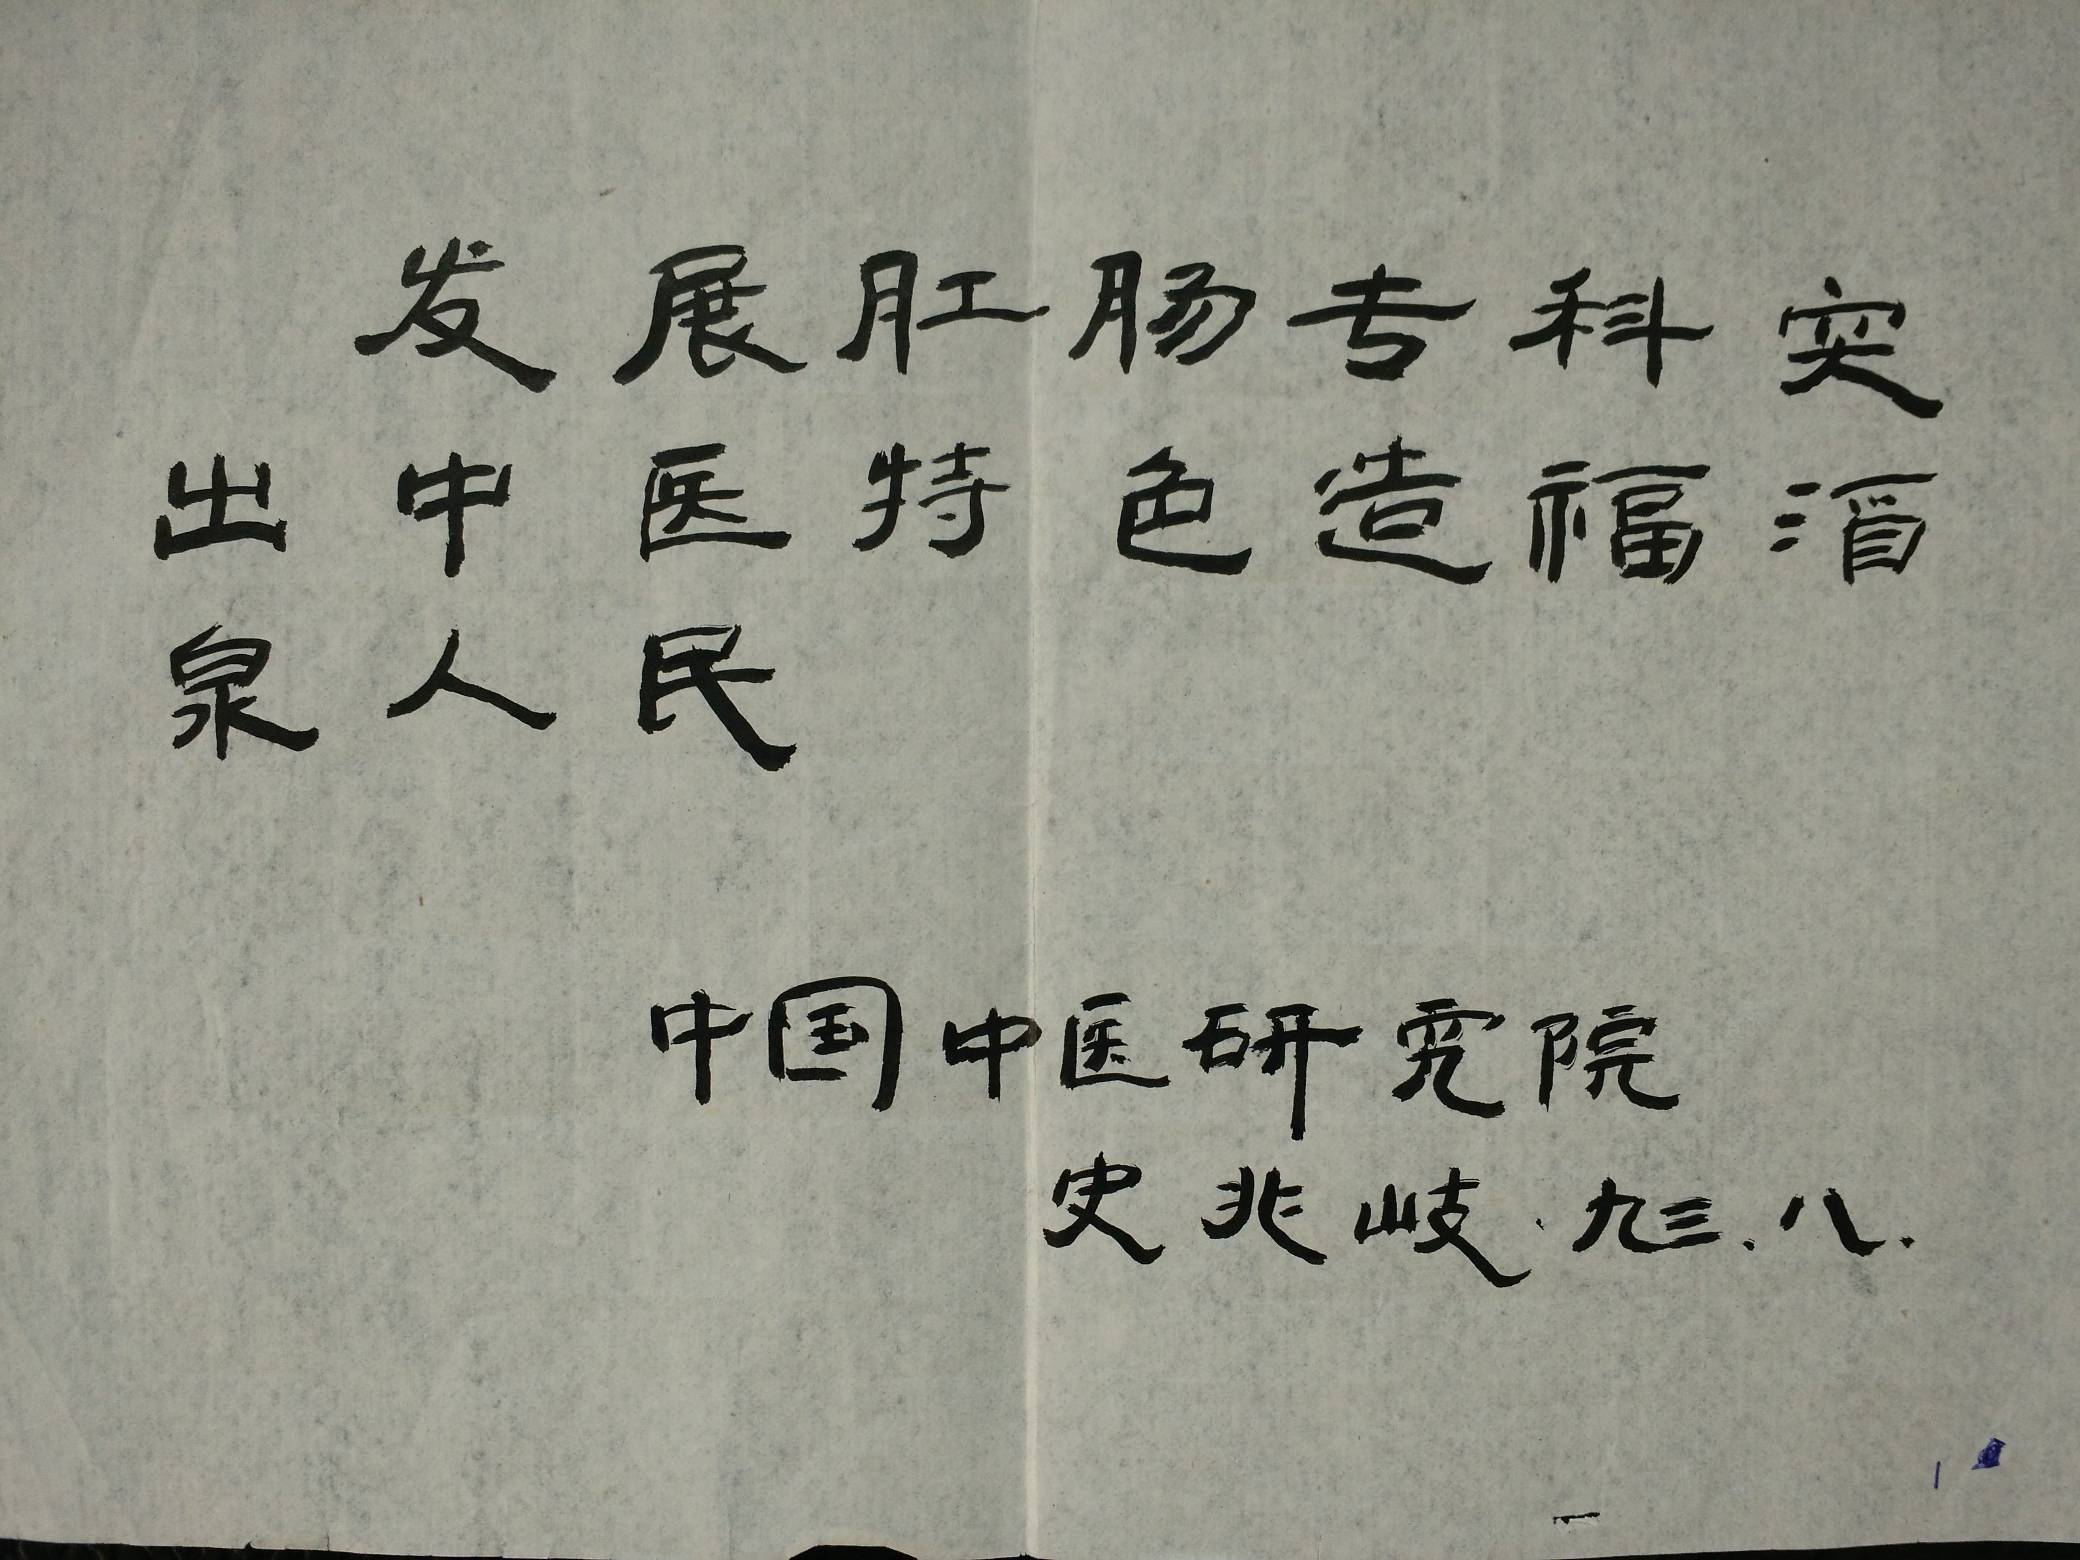 发展肛肠专科突
出中医特色造福酒
泉人民
中国中医研究院
史兆岐.九三.八.